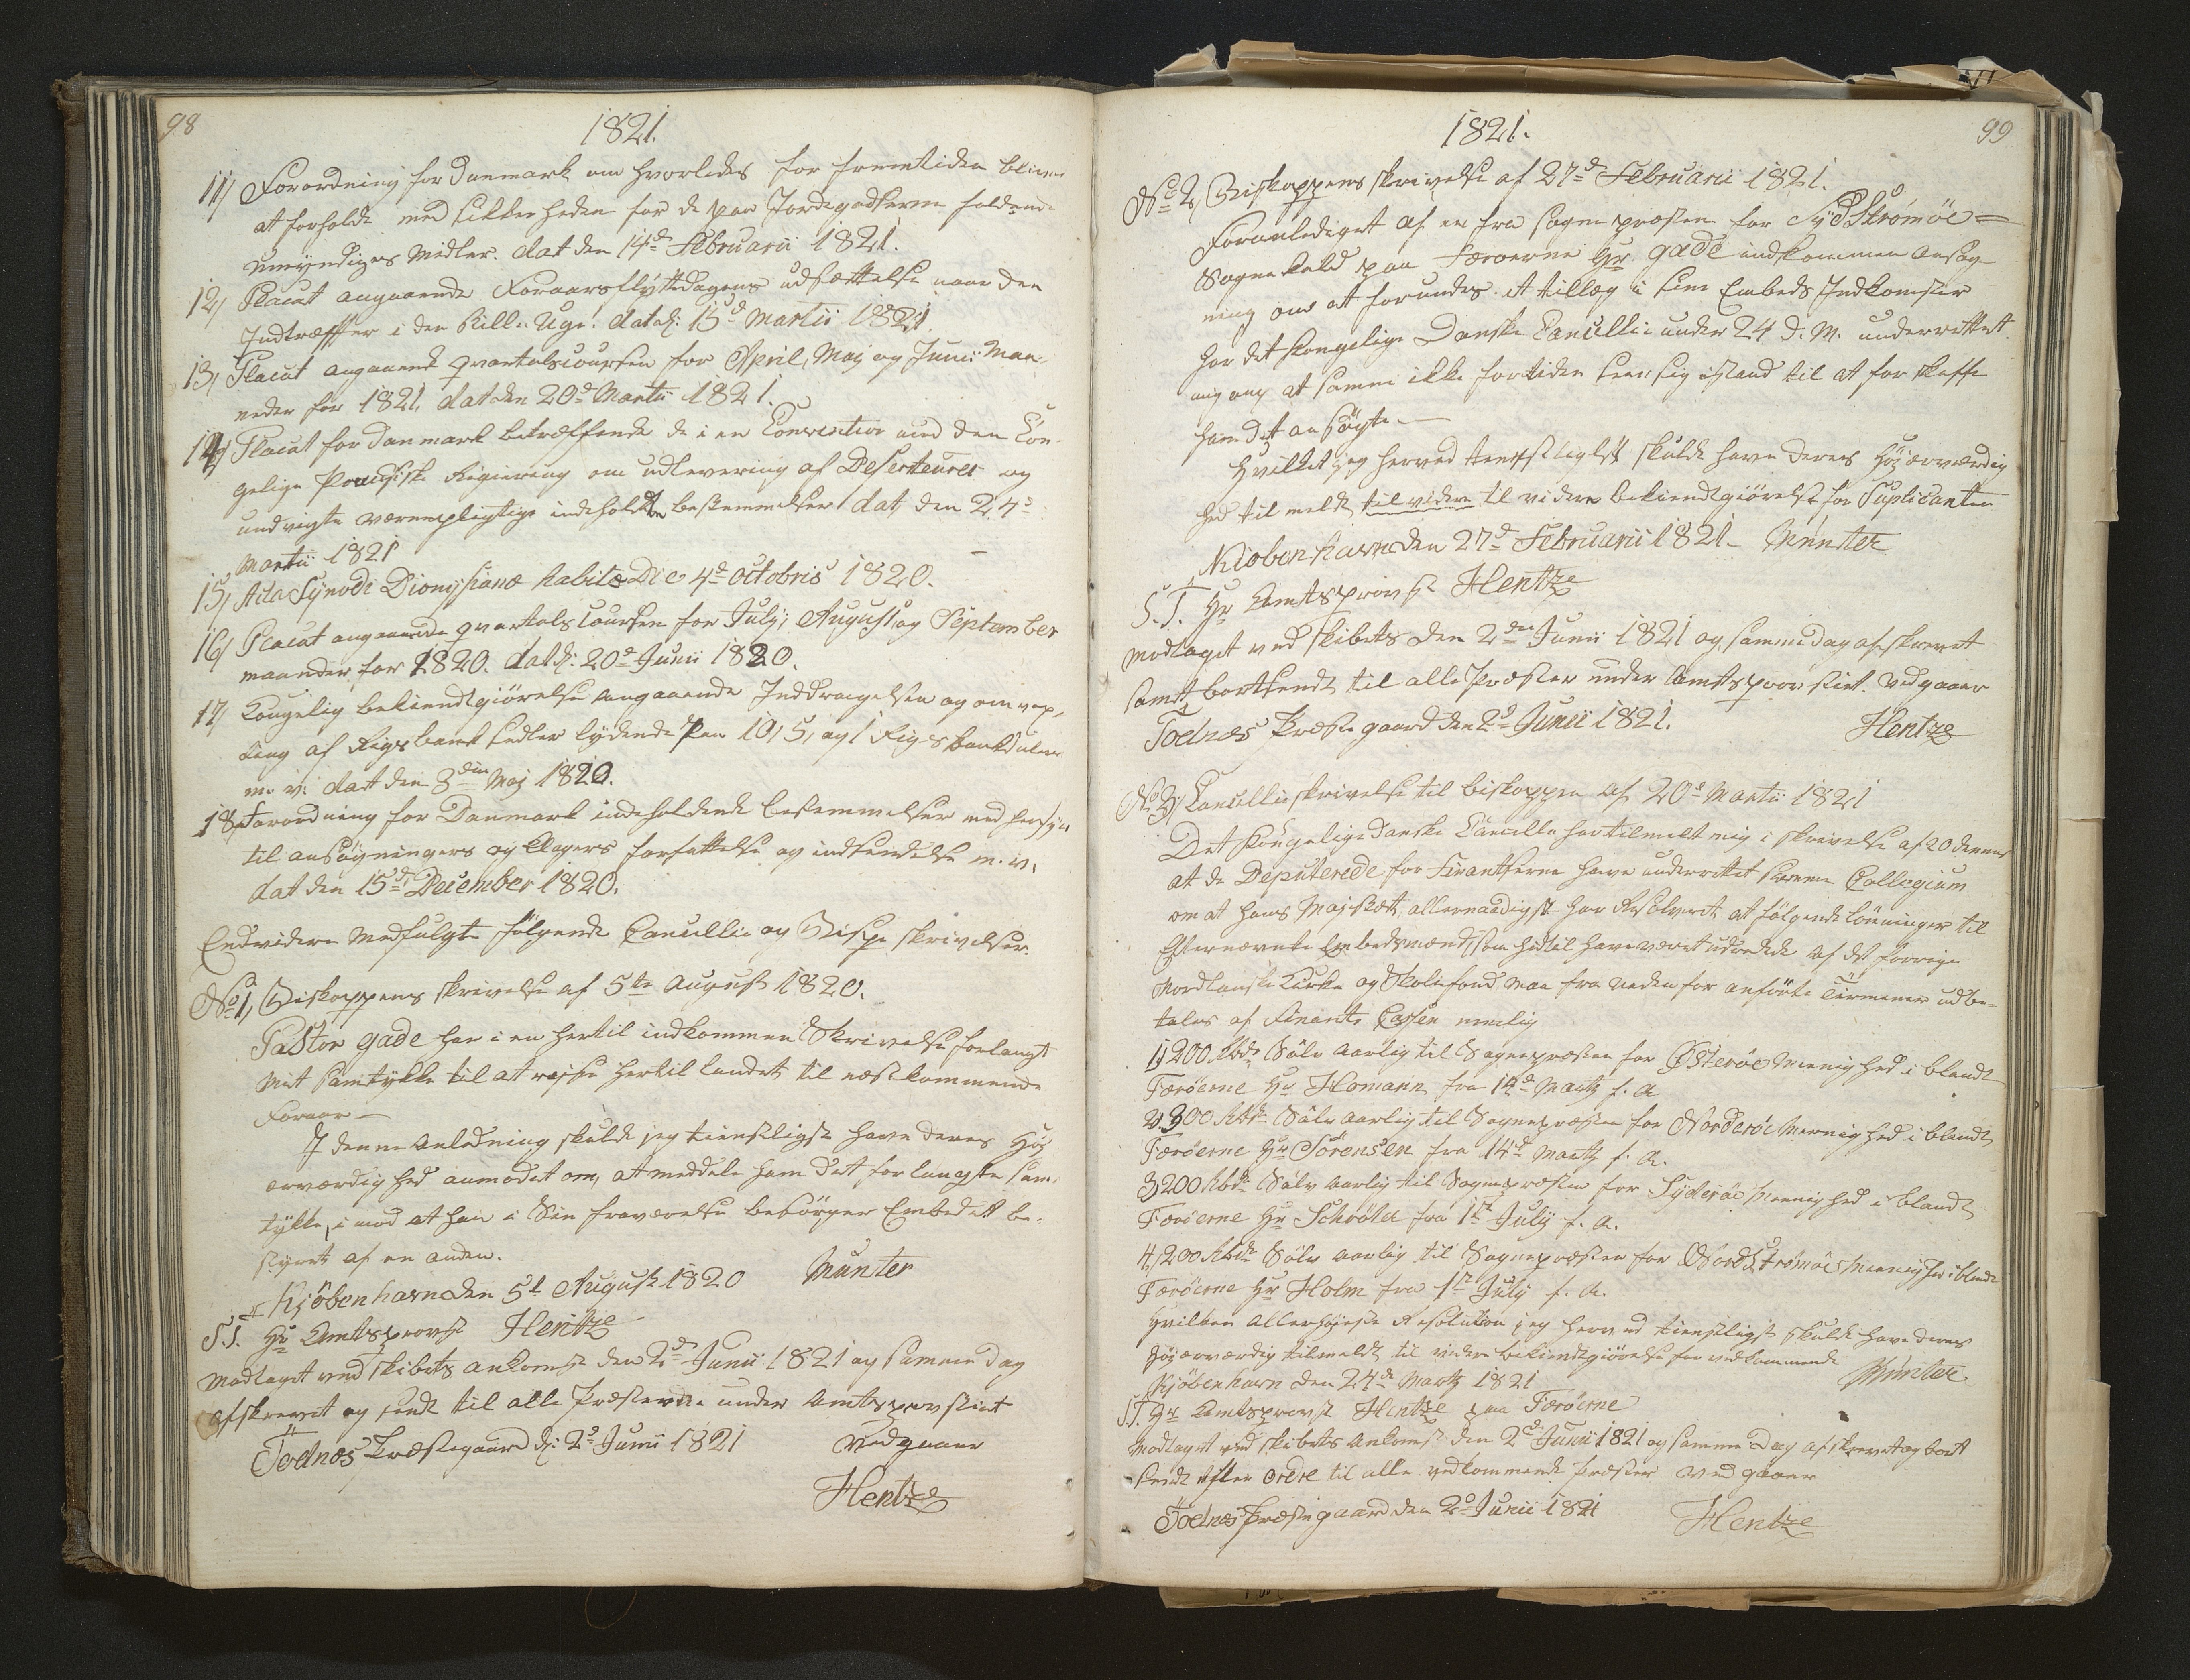 98
1821.
11) Forordning for Danmark om hvorledes for fremtiden bliver
at forholde med sikkerheden for de paa Jordegodserne heftende
umyndiges Midler. dat den 14d Februarii 1821.
12) Placat angaaende Foraarsflyttedagens udsættelse naar den
Indtræffer i den Stille Uge. dat d: 15d Martii 1821
13) Placat angaaende qvartalscoursen for April, Maj og Junii Maa-
neder for 1821. dat den 20d Martii 1821.
14) Placat for Danmark betreffende de i en Convention med den Kon-
gelige Preusiske Regiering om udlevering af Deserteurer og
undvigte værnepligtige indeholdte bestemmelser dat den 24d
Martii 1821
15) Acta Synodi Dionysianæ habitæ Die 4d Octobris 1820.
16) Placat angaaende qvartals Coursen for July, August og September
maaneder for 1820. dat d: 20d Junii 1820.
17) Kongelig bekiendtgiörelse angaaende Inddragelsen og omvex-
ling af Rigsbank sedler lydende paa 10, 5, og 1 Rigsbankdaler
m. v: dat den 3die Maj 1820.
18) Forordning for Danmark indeholdende bestemmelser med hensyn
til ansøgningers og klagers forfattelse og indsendelse m. v.
dat den 15d December 1820.
Endvidere medfulgte følgende Cancellie og Bispe skrivelser.
No 1, Biskoppens skrivelse af 5te August 1820.
Pastor Gade har i en hertil indkommen Skrivelse forlangt
Mit samtykke til at reise hertil landet til næstkommende
Foraar —
I denne Anledning skulde jeg tienstligst have deres Høj
ærværdighed anmodet om, at meddele ham det forlangte sam-
tykke, imod at han i Sin fraværelse besörger Embedet be-
styret af en anden.
Kjöbenhavn den 5t August 1820 Münter
S. T. Hr Amtsprovst Hentze
Modtaget ved skibets ankomst den 2d Junii 1821 og samme dag
afskrevet og sendt til alle Præsterne under Amtsprovstiet
Todnæs Præstegaard d: 2d Junii 1821 Vedgaaer
Hentze
99
1821.
No 2, Biskoppens skrivelse af 27d Februarii 1821.
Foranlediget af en fra sognepræsten for SydStrömöe
Sognekald paa Færøerne Hr Gade indkommen Ansøg-
ning om at forundes et tillæg i sine Embeds Indkomster
har det kongelige Danske Cancellie under 24 d. M. underrettet
mig om at samme ikke fortiden seer sig istand til at forskaffe
ham det ansøgte. —
Hvilket jeg herved tienstligst skulde have deres Højærværdig
hed til meldt til videre til videre bekiendtgiörelse for Suplicanten
Kiobenhavn den 27d Februarii 1821 — Münter
S. T. Hr Amtsprovst Hentze
Modtaget ved skibets den 2den Junii 1821 og samme dag afskrevet
samt bortsendt til alle Præster under Amtsprovstiet. Vedgaaer
Todnæs Præstegaard den 2d Junii 1821. Hentze
No 3, Cancellieskrivelse til biskoppen af 20d Martii 1821
Det Kongelige danske Cancellie har tilmeldt mig i skrivelse af 20 dennes
at de Deputerede for Finantserne have underrettet samme Collegium
om at hans Majestæt allernaadigst har Resolveret, at følgende lønninger til
Efternævnte Embedsmænd, som hidtil have været udredede af det forrige
Nordlanske Kirke og Skolefond, maa fra nedenfor anførte Terminer udbe-
tales af Finants Cassen nemlig
1) 200 Rbdr Sölv aarlig til Sognepræsten for Østerøe Menighed i blandt
Færøerne Hr Homann fra 14d Martz f. A.
2) 300 Rbdr Sölv aarlig til Sognepræsten for Norderöe Menighed i blandt
Færöerne Hr Sörensen fra 14d Martz f. A.
3) 200 Rbdr Sölv aarlig til Sognepræsten for Syderöe Menighed i blandt
Færöerne Hr Schröter fra 1st July f. A.
4) 200 Rbdr Sölv aarlig til Sognepræsten for NordStrømöe Menighed iblandt
Færöerne Hr Holm fra 1st July f. A.
Hvilken Allerhöjeste Resolution jeg herved tienstligst skulde have deres
Höjærværdig tilmeldt til videre bekiendtgiörelse for vedkommende
Kjöbenhavn den 24d Martz 1821 Münter
S.T. Hr Amtsprovst Hentze paa Færöerne
Modtaget ved skibets Ankomst den 2d Junii 1821 og samme dag afskrevet og bort
sendt efter Ordre til alle vedkommende Præster vedgaaer
Todnæs Præstegaard den 2d Junii 1821 Hentze